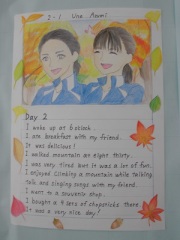 2-1 Une
Day 2
I woke up at 6 o'clock.
I ate breakfast with my friend.
It was delicious!
I walked mountain at eight thirty.
I was very tired but it was a lot of fun.
I enjoyed climbing a mountain while talking
talk and singing songs with my friend.
I went to a souvenir shop.
I bought a 4 sets of chopsticks there.
It was a very nice day!